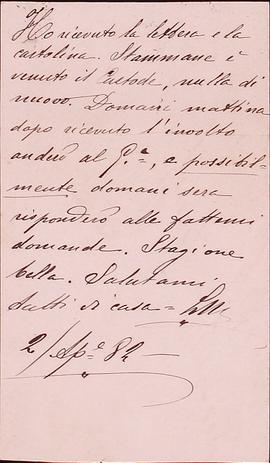 Ho ricevuto la lettera e la
cartolina. Stammane è
venuto il Custode, nulla di
nuovo. Domani mattina
dopo ricevuto l'involto
anderò al G.ᵃ, e possibil-
mente domani sera
risponderò alle fattemi
domande. Stagione
bella. Salutami
tutti di casa =
2/Ap.ᵉ 82 —